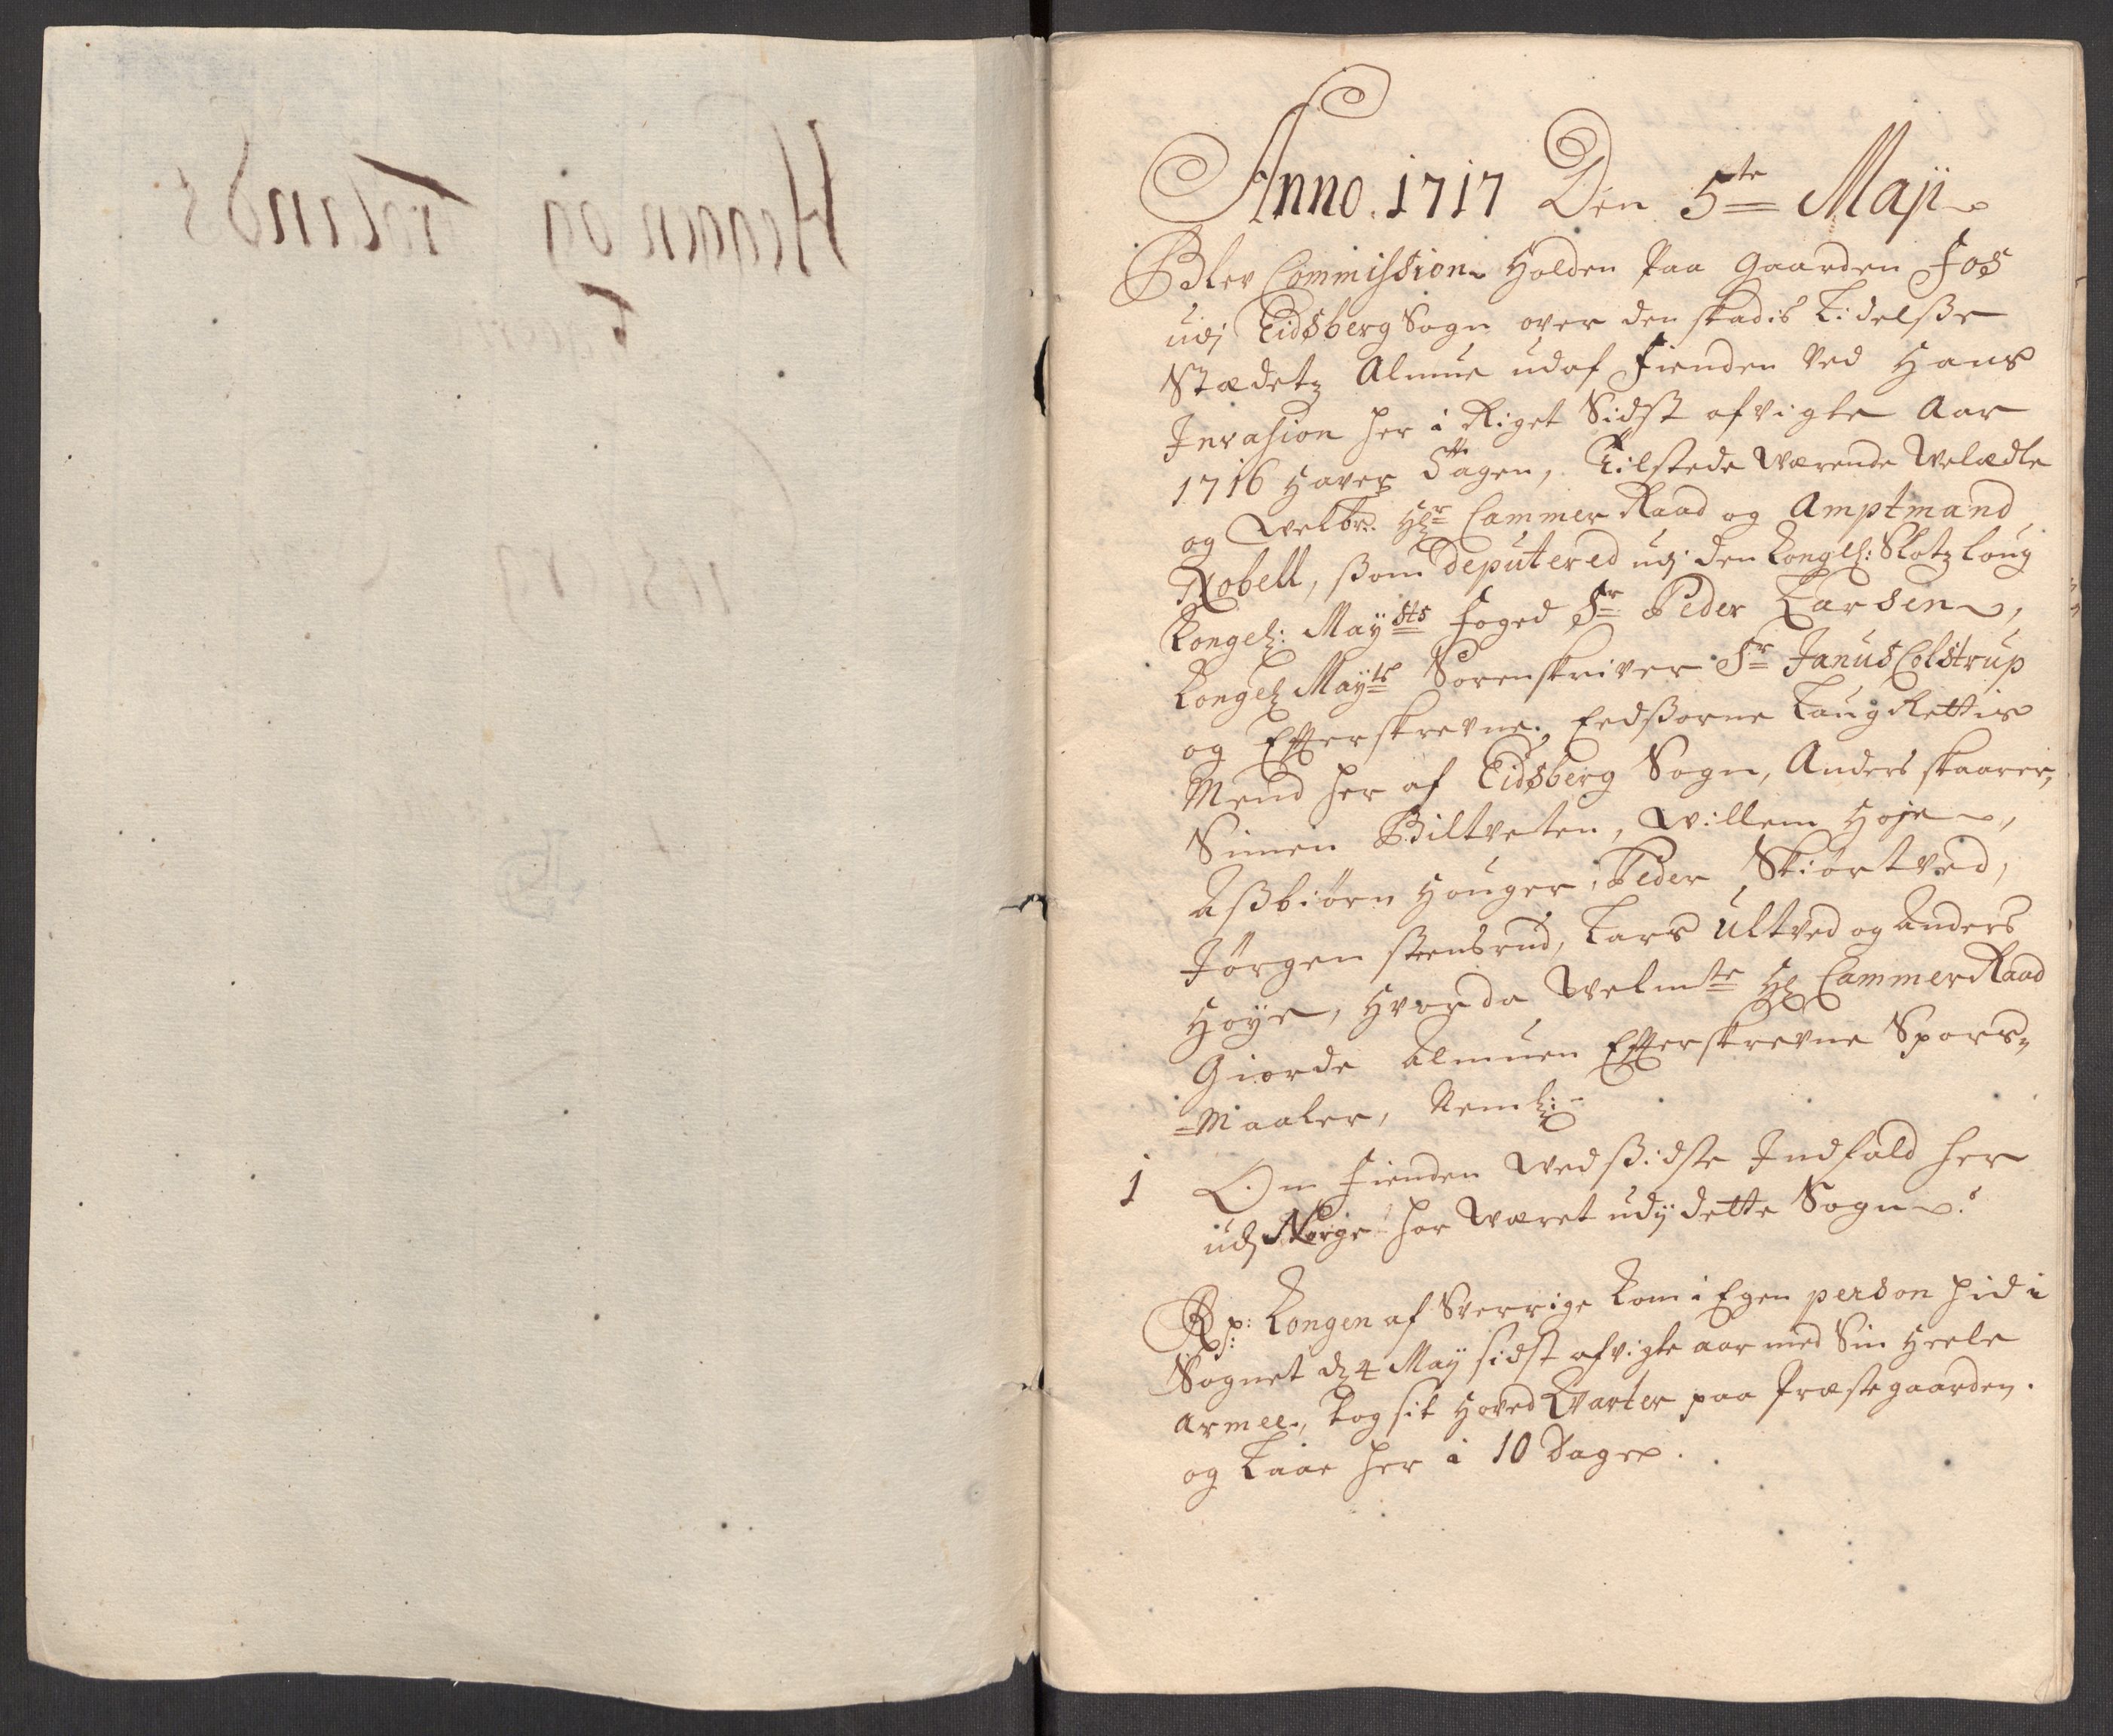 Heggen og Frølands
Anno. 1717 Den 5te Maji
Blev Commission Holden Paa Gaarden Fos
udj Eidsberg Sogn over den skadis Lidelsse
Stædetz Almue udaf Fienden Ved Hans
Invasion her i Riget Sidst afvigte Aar
1716 Haver Tagen, Tilstede Værende Velædle
og Velbr: Hr Cammer Raad og Amptmand
Kobell, ssom deputered udj den Kongel: Slotz Loug
Kongel: Maysts Foged Sr Peder Larsen,
Kongel Mayts Sorenskriver Sr Janus Colstrup
og Efterskrevne, Eedssorne Laug Rettis
Mend her af Eidsberg Sogn, Anders skaarer,
Simen Biltveten, Willem Høje,
Assbiørn Houger, Peder Skiørtved,
Jørgen steensrud, Lars Ultved og Anders
Høye, Hvor da Velmte H Cammer Raad
Giorde Almuen Efterskrevne Spors-
-Maaler, Neml:
1 Om Fienden Ved ssidste Indfald her
udj Norge har Været udij dette Sogn.
Rp: Kongen af Sverrige kom i Egen person hid i
Sognet d 4 Maij sidst afvigte aar med Sin Heele
Armee, tog sit Hoved Qvarter paa Præstegaarden.
og Laae her i 10 Dage.